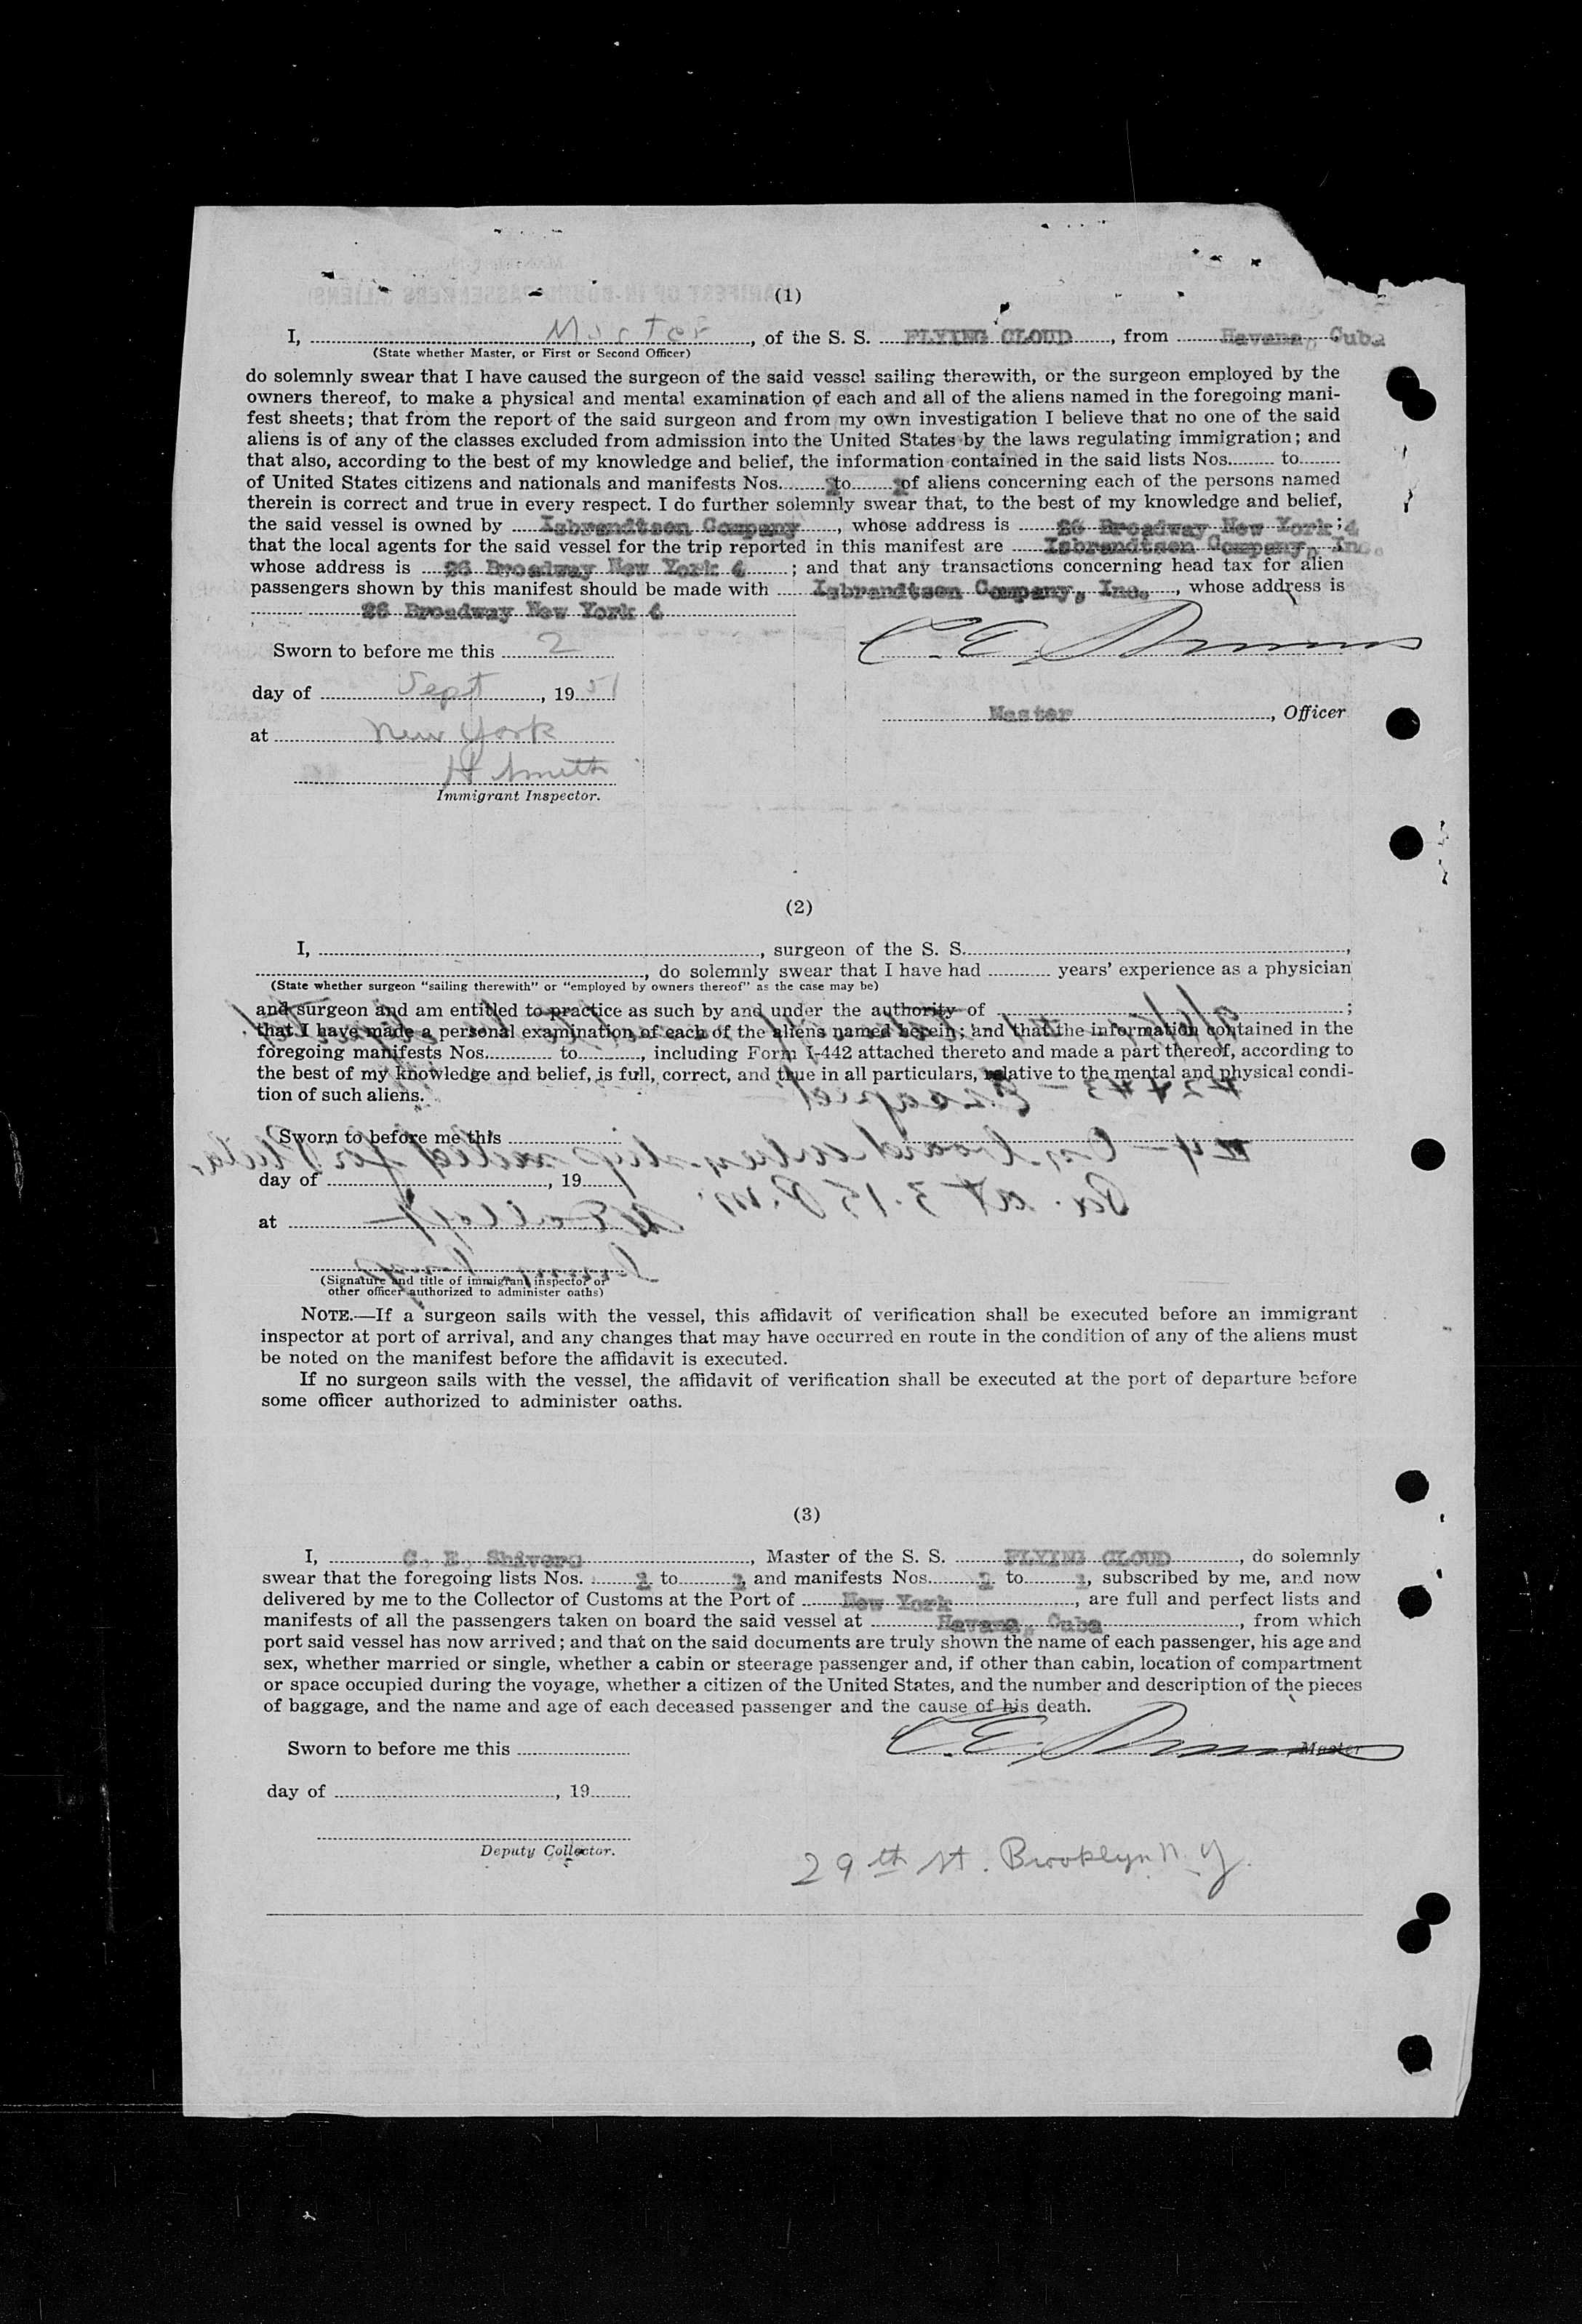 (1)
I, Master, of the S. S. FLYING CLOUD, from Havana, Cuba
(State whether Master, or First or Second Officer)
do solemnly swear that I have caused the surgeon of the said vessel sailing therewith, or the surgeon employed by the
owners thereof, to make a physical and mental examination of each and all of the aliens named in the foregoing mani-
fest sheets; that from the report of the said surgeon and from my own investigation I believe that no one of the said
aliens is of any of the classes excluded from admission into the United States by the laws regulating immigration; and
that also, according to the best of my knowledge and belief, the information contained in the said lists Nos. to
of United States citizens and nationals and manifests Nos. to of aliens concerning each of the persons named
therein is correct and true in every respect. I do further solemnly swear that, to the best of my knowledge and belief,
the said vessel is owned by Isbrandtsen Company, whose address is 26 Broadway New York 4;
that the local agents for the said vessel for the trip reported in this manifest are Isbrandtsen Company, Inc.
whose address is 26 Broadway New York 4; and that any transactions concerning head tax for alien
passengers shown by this manifest should be made with Isbrandtsen Company, Inc., whose address is
26 Broadway New York 4
Sworn to before me this 2
day of Sept, 1951
Master, Officer
at New York
H Smith
Immigrant Inspector.
(2)
I, , surgeon of the S. S. ,
, do solemnly swear that I have had years' experience as a physician
(State whether surgeon "sailing therewith" or "employed by owners thereof" as the case may be)
and surgeon and am entitled to practice as such by and under the authority of ;
that I have made a personal examination of each of the aliens named herein; and that the information contained in the
foregoing manifests Nos. to , including Form I-442 attached thereto and made a part thereof, according to
the best of my knowledge and belief, is full, correct, and true in all particulars, relative to the mental and physical condi-
tion of such aliens.
Sworn to before me this
day of , 19
at
(Signature and title of immigrant inspector or
other officer authorized to administer oaths)
NOTE.—If a surgeon sails with the vessel, this affidavit of verification shall be executed before an immigrant
inspector at port of arrival, and any changes that may have occurred en route in the condition of any of the aliens must
be noted on the manifest before the affidavit is executed.
If no surgeon sails with the vessel, the affidavit of verification shall be executed at the port of departure before
some officer authorized to administer oaths.
(3)
I, C. E. Shivers, Master of the S. S. FLYING CLOUD, do solemnly
swear that the foregoing lists Nos. to , and manifests Nos. to , subscribed by me, and now
delivered by me to the Collector of Customs at the Port of New York, are full and perfect lists and
manifests of all the passengers taken on board the said vessel at Havana, Cuba, from which
port said vessel has now arrived; and that on the said documents are truly shown the name of each passenger, his age and
sex, whether married or single, whether a cabin or steerage passenger and, if other than cabin, location of compartment
or space occupied during the voyage, whether a citizen of the United States, and the number and description of the pieces
of baggage, and the name and age of each deceased passenger and the cause of his death.
Sworn to before me this
Master
day of , 19
Deputy Collector.
29th St. Brooklyn N.Y.